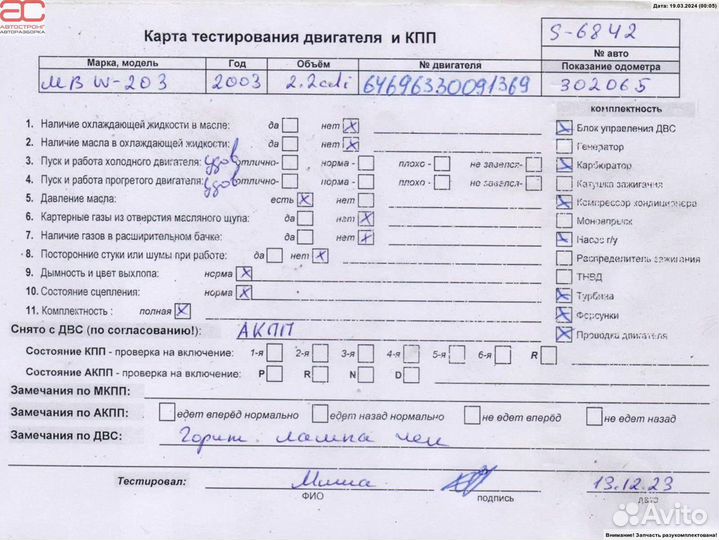 Дата: 19.03.2024 (00:05)
АС
АВТОСТРОНГ
АВТОРАЗБОРКА
Карта тестирования двигателя и КПП
S-6842
№ авто
Марка, модель Год Объём № двигателя Показание одометра
МВ W-203 2003 2.2cdi 64696330091369 302065
комплектность
1. Наличие охлаждающей жидкости в масле: да нет X
X Блок управления ДВС
2. Наличие масла в охлаждающей жидкости: да нет X
Генератор
3. Пуск и работа холодного двигателя: удов отлично- норма - плохо - не завелся-
X Карбюратор
4. Пуск и работа прогретого двигателя: удов отлично- норма - плохо - не завелся-
Катушка зажигания
5. Давление масла: есть X нет
X Компрессор кондиционера
6. Картерные газы из отверстия масляного щупа: да нет X
Моновпрыск
7. Наличие газов в расширительном бачке: да нет X
X Насос г/у
8. Посторонние стуки или шумы при работе: да нет X
Распределитель зажигания
9. Дымность и цвет выхлопа: норма X
ТНВД
10. Состояние сцепления: норма X
X Турбина
11. Комплектность : полная X
X Форсунки
Снято с ДВС (по согласованию!): АКПП
X Проводка двигателя
Состояние КПП - проверка на включение: 1-я 2-я 3-я 4-я 5-я 6-я R
Состояние АКПП - проверка на включение: P R N D
Замечания по МКПП:
Замечания по АКПП: едет вперёд нормально едет назад нормально не едет вперёд не едет назад
Замечания по ДВС: Горит лампа чек
Тестировал: Миша 13.12.23
ФИО подпись дата
Avito
Внимание! Запчасть разукомплектована!